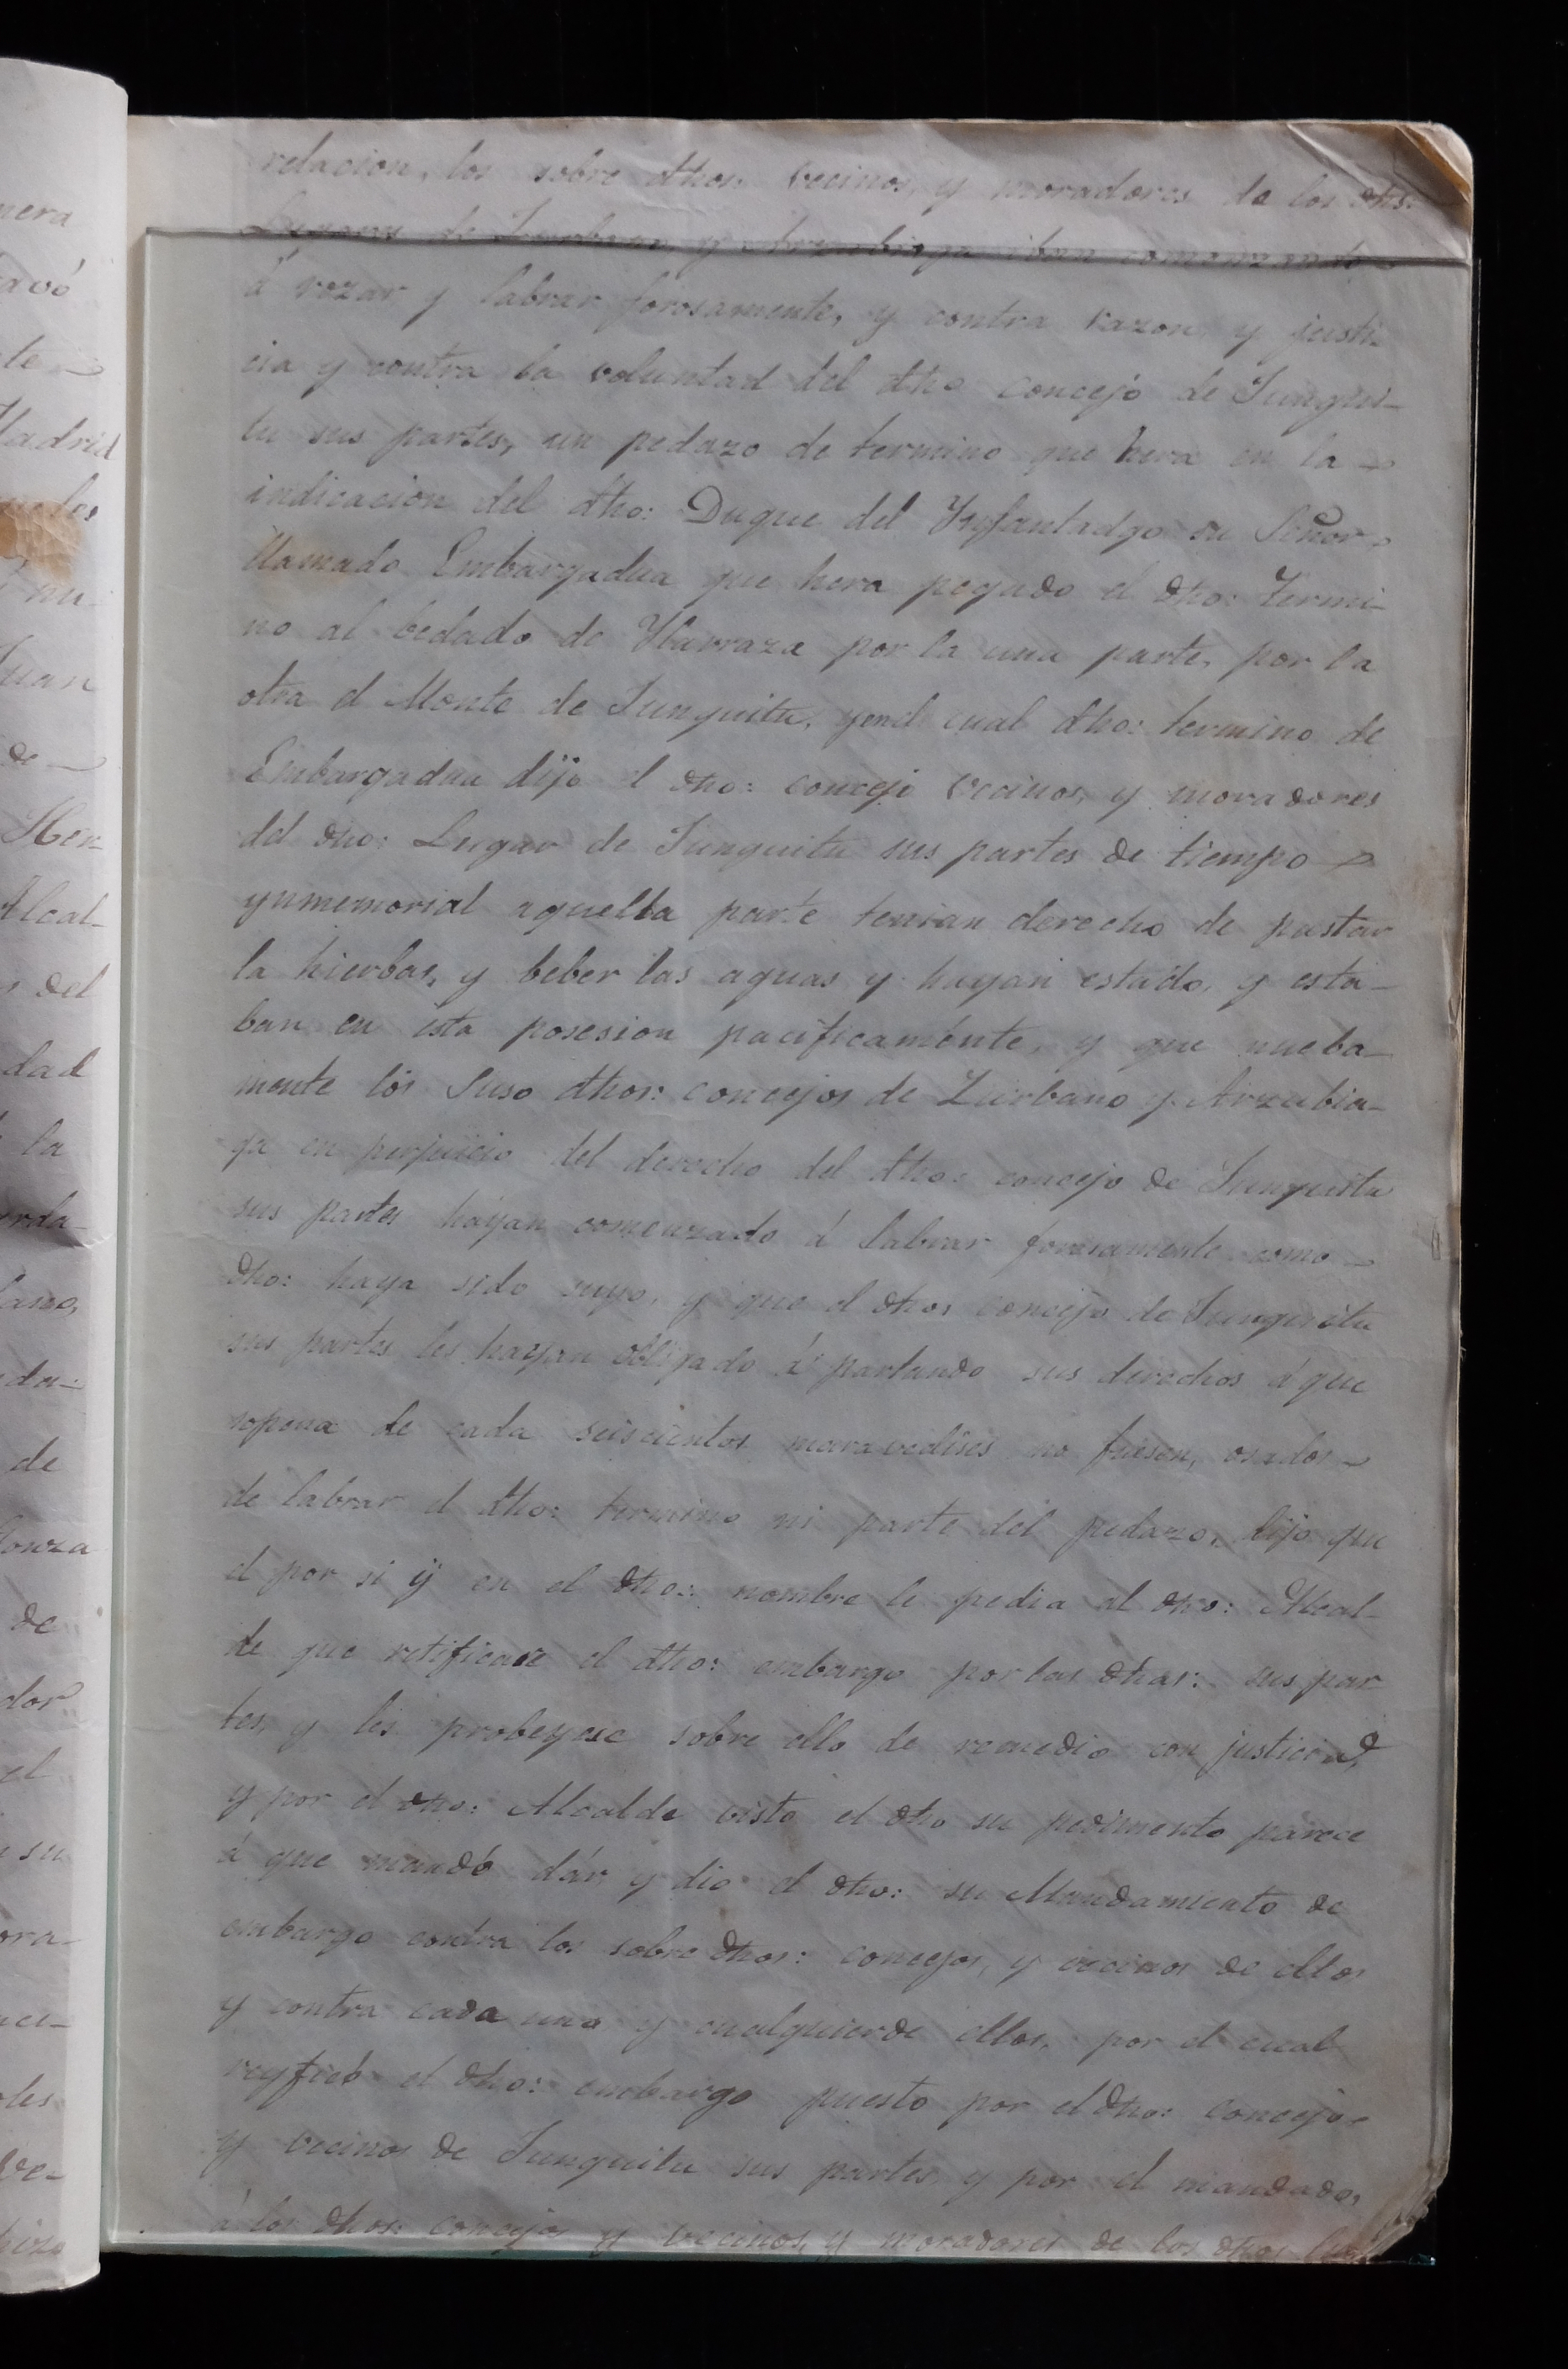 relacion, los sobre dhos: vecinos, y moradores de los dhos:
Lugares de Zurbano, y Arzubiaga iban comenzando
á rozar y labrar forosamente, y contra razon, y justi-
cia y contra la voluntad del dho concejo de Jungui-
tu sus partes, un pedazo de termino que hera en la
indicacion del dho: Duque del Ynfantadgo su Señor
llamado Embargadua que hera pegado el dho: termi-
no al bedado de Ybarraza por la una parte, por la
otra el Monte de Junguitu, yend cual dho: termino de
Embargadua dijo el dho: concejo vecinos, y moradores
del dho: Lugar de Junguitu sus partes de tiempo
ynmemorial aquella parte tenian derecho de pastar
la hierbas, y beber las aguas y hayan estado, y esta-
ban en esta posesion pacificamente, y que nueba-
mente los Suso dhos: concejos de Zurbano y Arzubia-
ga en perjuicio del derecho del dho: concejo de Junguitu
sus partes hayan comenzado á labrar forosamente como
dho: haya sido suyo, y que el dhos concejo de Junguitu
sus partes les hayan obligado á partando sus derechos á que
sopena de cada seiscientos maravedises no fuesen, osados
de labrar el dho: termino ni parte del pedazo, dijo que
el por si ÿ en el dho: nombre le pedia al dho: Alcal-
de que retificase el dho: embargo por las dhas: sus par
tes, y les probeyese sobre ello de remedio con justicia,
y por el dho: Alcalde visto el dho su pedimento parece
á que mandó dár y dio el dho: su Mandamiento de
embargo contra los sobre dhos: concejos, y vecinos de ellos
y contra cada uno y cualquierde ellos, por el cual
reyficó el dho: embargo puesto por el dho: concejo
y vecinos de Junguitu sus partes, y por el mandado,
á los dhos: concejos y vecinos, y moradores de los dhos